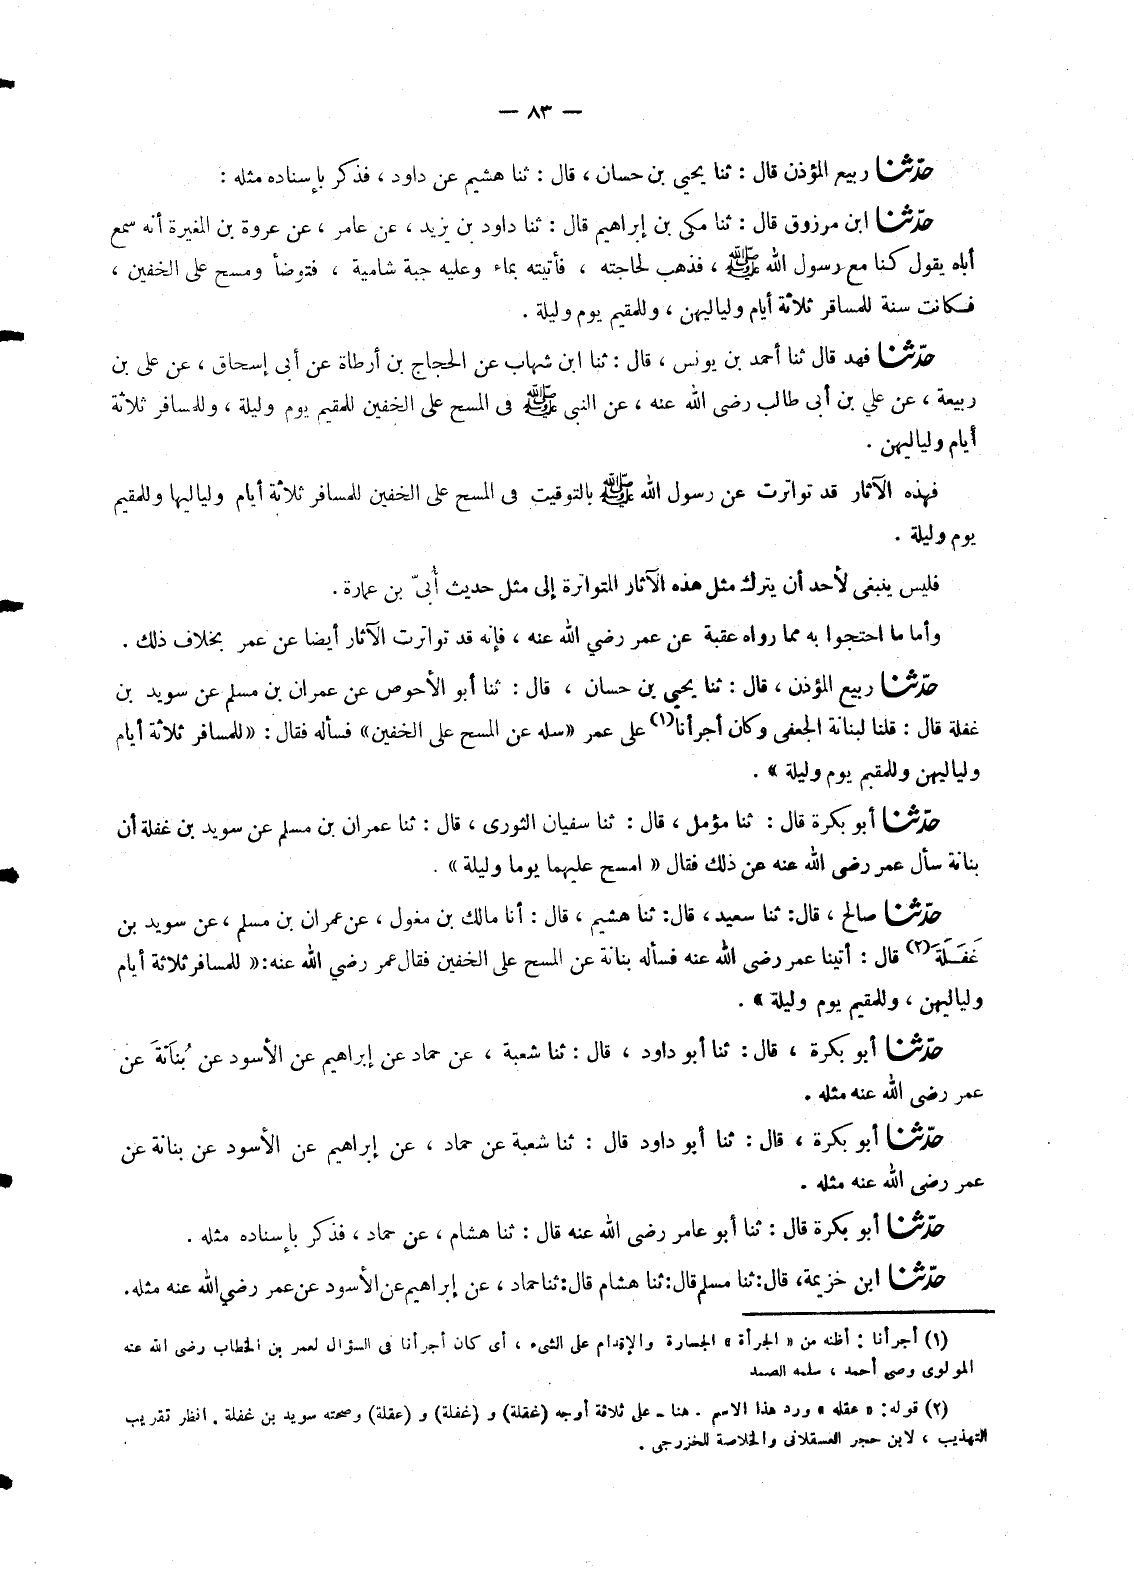 — ٨٣ —
حدّثنا ربيع المؤذن قال : ثنا يحيي بن حسان ، قال : ثنا هشيم عن داود ، فذكر بإسناده مثله :
حدّثنا ابن مرزوق قال : ثنا مكى بن إبراهيم قال : ثنا داود بن يزيد ، عن عامر ، عن عروة بن المغيرة أنه سمع
أباه يقول كنا مع رسول الله ﷺ ، فذهب لحاجته ، فأتيته بماء وعليه جبة شامية ، فتوضأ ومسح على الخفين ،
فكانت سنة للمسافر ثلاثة أيام ولياليهن ، وللمقيم يوم وليلة .
حدّثنا فهد قال ثنا أحمد بن يونس ، قال : ثنا ابن شهاب عن الحجاج بن أرطاة عن أبى إسحاق ، عن على بن
ربيعة ، عن علي بن أبى طالب رضى الله عنه ، عن النبى ﷺ فى المسح على الخفين للمقيم يوم وليلة ، وللمسافر ثلاثة
أيام ولياليهن .
فهذه الآثار قد تواترت عن رسول الله ﷺ بالتوقيت فى المسح على الخفين للمسافر ثلاثة أيام ولياليها وللمقيم
يوم وليلة .
فليس ينبغى لأحد أن يترك مثل هذه الآثار المتواترة إلى مثل حديث أُبىّ بن عمارة .
وأما ما احتجوا به مما رواه عقبة عن عمر رضي الله عنه ، فإنه قد تواترت الآثار أيضا عن عمر بخلاف ذلك .
حدّثنا ربيع المؤذن ، قال : ثنا يحيي بن حسان ، قال : ثنا أبو الأحوص عن عمران بن مسلم عن سويد بن
غفلة قال : قلنا لبنانة الجعفى وكان أجرأنا(١) على عمر «سله عن المسح على الخفين» فسأله فقال : «للمسافر ثلاثة أيام
ولياليهن وللمقيم يوم وليلة » .
حدّثنا أبو بكرة قال : ثنا مؤمل ، قال : ثنا سفيان الثورى ، قال : ثنا عمران بن مسلم عن سويد بن غفلة أن
بنانة سأل عمر رضى الله عنه عن ذلك فقال « امسح عليهما يوما وليلة » .
حدّثنا صالح ، قال: ثنا سعيد، قال: ثنا هشيم ، قال : أنا مالك بن مغول ، عن عمران بن مسلم ، عن سويد بن
غَفَـلَةَ(٢) قال : أتينا عمر رضى الله عنه فسأله بنانة عن المسح على الخفين فقال عمر رضي الله عنه:« للمسافر ثلاثة أيام
ولياليهن ، وللمقيم يوم وليلة » .
حدّثنا أبو بكرة ، قال : ثنا أبو داود ، قال : ثنا شعبة ، عن حماد عن إبراهيم عن الأسود عن بُنَانَةَ عن
عمر رضى الله عنه مثله .
حدّثنا أبو بكرة ، قال : ثنا أبو داود قال : ثنا شعبة عن حماد ، عن إبراهيم عن الأسود عن بنانة عن
عمر رضى الله عنه مثله .
حدّثنا أبو بكرة قال : ثنا أبو عامر رضى الله عنه قال : ثنا هشام ، عن حماد ، فذكر بإسناده مثله .
حدّثنا ابن خزيمة، قال:ثنا مسلم قال:ثنا هشام قال:ثنا حماد ، عن إبراهيم عن الأسود عن عمر رضي الله عنه مثله.
(١) أجرأنا : أظنه من « الجرأة » الجسارة والإقدام على الشىء ، أى كان أجرأنا فى السؤال لعمر بن الخطاب رضى الله عنه
المولوى وصى أحمد ، سلمه الصمد
(٢) قوله: « عقله » ورد هذا الاسم . هنا ـ على ثلاثة أوجه (غقلة) و (غفلة) و (عقلة) وصحته سويد بن غفلة . انظر تقريب
التهذيب ، لابن حجر العسقلانى والخلاصة للخزرجى .